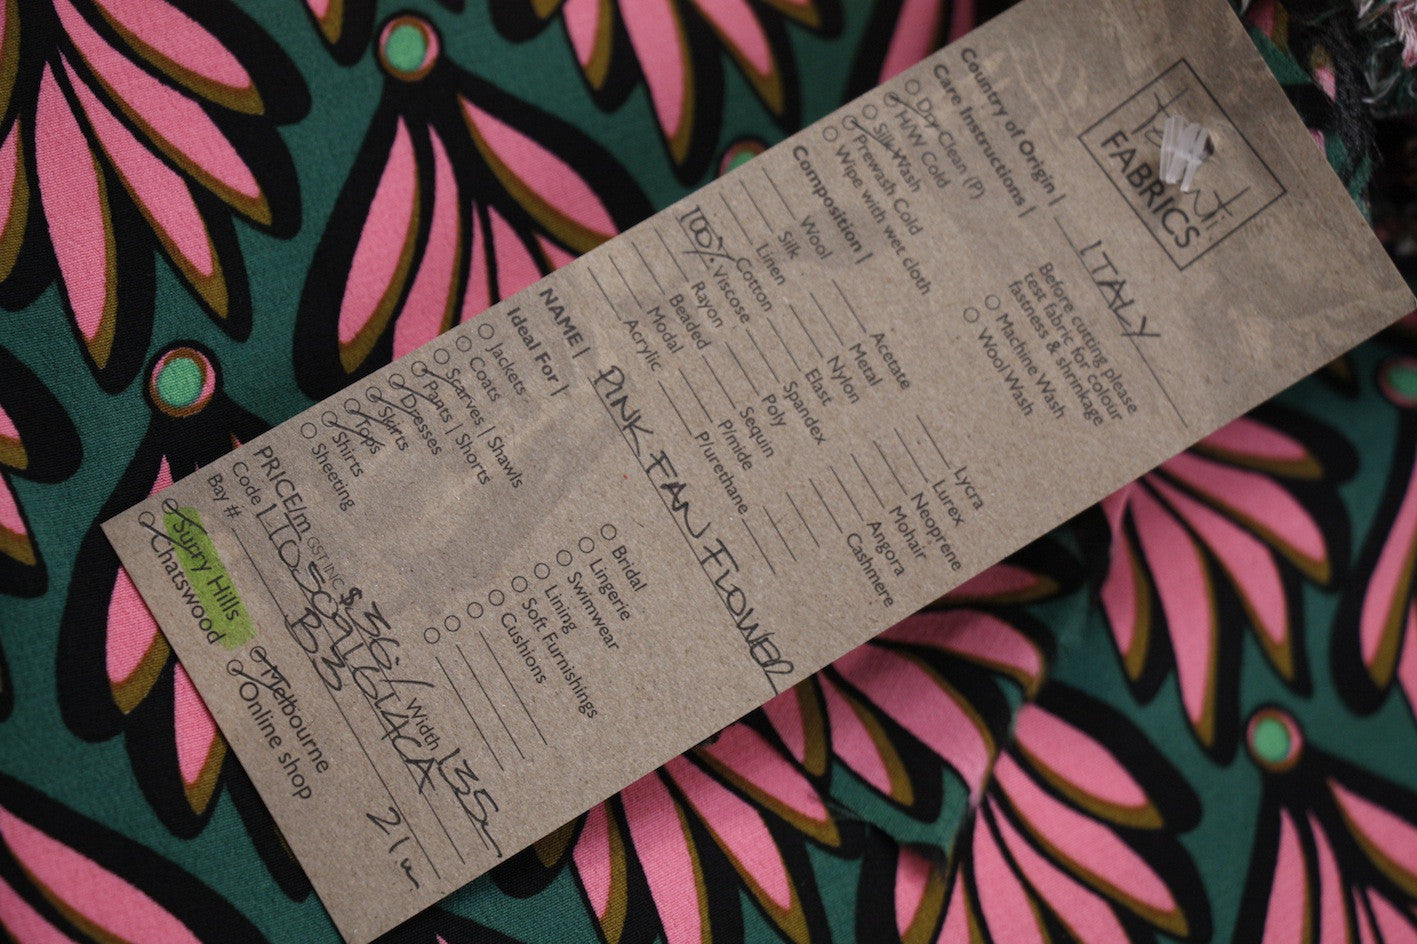 FABRICS
Country of Origin | ITALY
Care Instructions |
Dry Clean (P)
H/W Cold
Silk Wash
Prewash Cold
Wipe with wet cloth
Before cutting please
test fabric for colour
fastness & shrinkage
Machine Wash
Wool Wash
Composition |
Wool
Silk
Linen
Cotton
100% Viscose
Rayon
Beaded
Modal
Acrylic
Acetate
Metal
Nylon
Elast
Spandex
Poly
Sequin
P/mide
P/urethane
Lycra
Lurex
Neoprene
Mohair
Angora
Cashmere
NAME | PINK FAN FLOWER
Ideal For |
Jackets
Coats
Scarves | Shawls
Pants | Shorts
Dresses
Skirts
Tops
Shirts
Sheeting
Bridal
Lingerie
Swimwear
Lining
Soft Furnishings
Cushions
PRICE/m GST INC $36./ Width 135
Code |
Bay # B3
21m
Surry Hills
Chatswood
Melbourne
Online shop